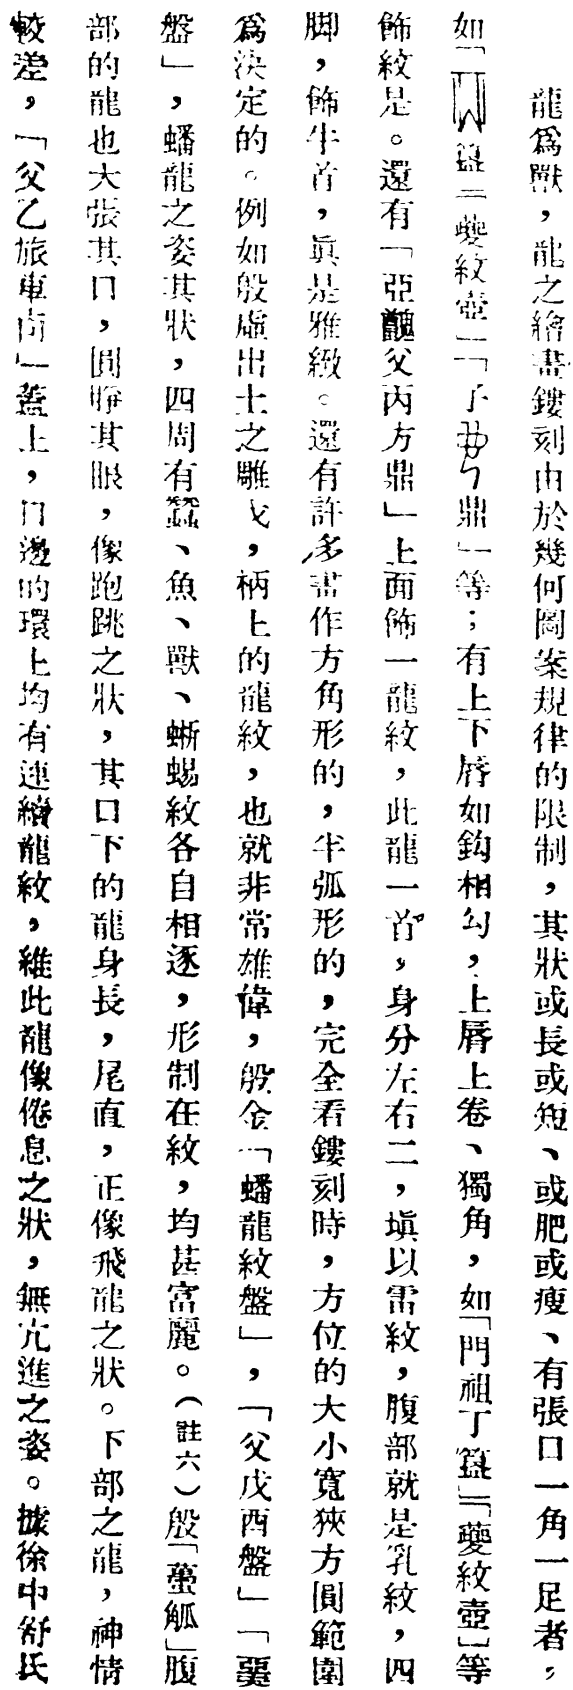 龍爲獸，龍之繪畫鏤刻由於幾何圖案規律的限制，其狀或長或短、或肥或瘦、有張口一角一足者，
如「簋」「夔紋壺」「子鼎」等；有上下唇如鈎相勾，上唇上卷、獨角，如「門祖丁簋」「夔紋壺」等
飾紋是。還有「亞醜父丙方鼎」上面飾一龍紋，此龍一首，身分左右二，塡以雷紋，腹部就是乳紋，四
脚，飾牛首，眞是雅緻。還有許多畫作方角形的，半弧形的，完全看鏤刻時，方位的大小寬狹方圓範圍
爲決定的。例如殷虛出土之雕戈，柄上的龍紋，也就非常雄偉，殷金「蟠龍紋盤」，「父戊酉盤」「
盤」，蟠龍之姿其狀，四周有龍、魚、獸、蜥蜴紋各自相逐，形制在紋，均甚富麗。（註六）殷「觚」腹
部的龍也大張其口，圓睜其眼，像跑跳之狀，其口下的龍身長，尾直，正像飛龍之狀。下部之龍，神情
較差，「父乙旅車卣」蓋上，口邊的環上均有連續龍紋，維此龍像倦息之狀，無亢進之姿。據徐中舒氏